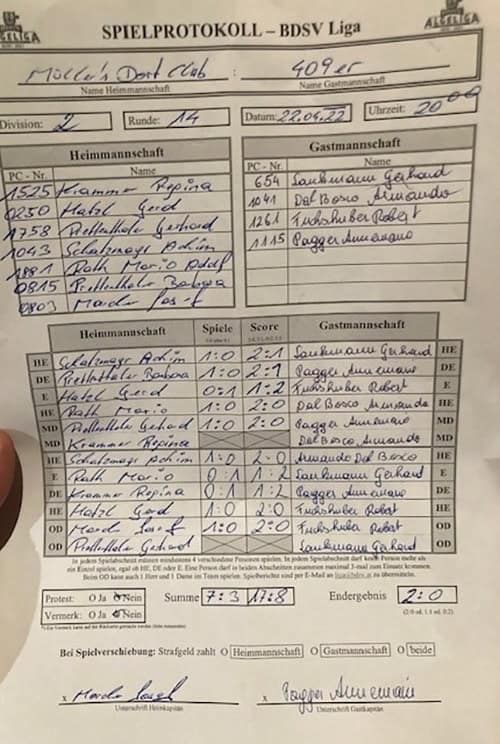 SPIELPROTOKOLL – BDSV Liga
Müller's Dart Club : 409er
Name Heimmannschaft Name Gastmannschaft
Division: 2 Runde: 14 Datum: 22.04.22 Uhrzeit: 20 00
Heimmannschaft Gastmannschaft
PC - Nr. Name PC - Nr. Name
1525 Krammer Regina 654 Gerhard
0250 Hatzl Gerd 1041 Dal Bosco Armando
1758 Gerhard 1261 Fuchshuber Robert
1043 Schatzmayr Achim 1115 Pagger Annemarie
1881 Rath Mario Adolf
0815 Barbara
0803 Josef
Heimmannschaft Spiele Score Gastmannschaft
HE Schatzmayr Achim 1:0 2:1 Gerhard HE
DE Barbara 1:0 2:1 Pagger Annemarie DE
E Hatzl Gerd 0:1 1:2 Fuchshuber Robert E
HE Rath Mario 1:0 2:0 Dal Bosco Armando HE
MD Gerhard 1:0 2:0 Pagger Annemarie MD
MD Krammer Regina Dal Bosco Armando MD
HE Schatzmayr Achim 1:0 2:0 Armando Dal Bosco HE
E Rath Mario 0:1 1:2 Gerhard E
DE Krammer Regina 0:1 1:2 Pagger Annemarie DE
HE Hatzl Gerd 1:0 2:0 Fuchshuber Robert HE
OD Josef 1:0 2:0 Fuchshuber Robert OD
OD Gerhard Gerhard OD
In jedem Spielabschnitt müssen mindestens 4 verschiedene Personen spielen. In jedem Spielabschnitt darf keine Person mehr als
ein Einzel spielen, egal ob HE, DE oder E. Eine Person darf in beiden Abschnitten zusammen maximal 3-mal zum Einsatz kommen.
Beim OD kann auch 1 Herr und 1 Dame im Team spielen. Spielberichte sind per E-Mail an zu übermitteln.
Protest: O Ja O Nein Summe 7:3 17:8 Endergebnis 2:0
Vermerk: O Ja O Nein (2:0 od. 1:1 od. 0:2)
Bei Spielverschiebung: Strafgeld zahlt O Heimmannschaft O Gastmannschaft O beide
x x Pagger Annemarie
Unterschrift Heimkapitän Unterschrift Gastkapitän